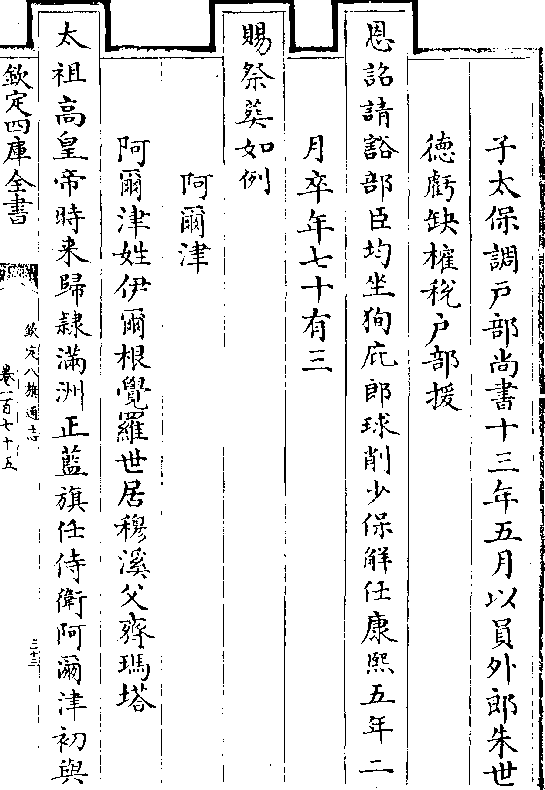 子太保調戸部尚書十三年五月以員外郎朱世
德虧缺榷稅户部援
恩詔請豁部臣均坐狥庇郎球削少保解任康熙五年二
月卒年七十有三
賜祭葬如例
阿爾津
阿爾津姓伊爾根覺羅世居穆溪父齊瑪塔
太祖高皇帝時来歸隷滿洲正藍旗任侍衛阿爾津初與
欽定四庫全書
欽定八旗通志
卷一百七十五
三十三